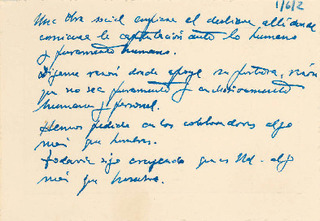 1/6/2
Una Obra social empieza el declive allí donde
comienza la capitulación ante lo humano
y puramente humano.
Dígame razón donde apoye su postura, razón
que no sea puramente y exclusivamente
humana y personal.
Hemos pedido a los colaboradores algo
más que hombres.
Todavía sigo creyendo que es Ud. algo
más que